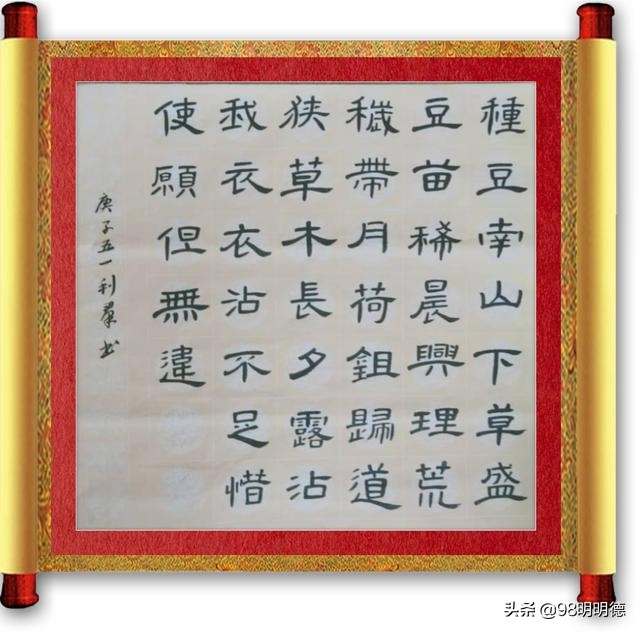 種豆南山下草盛
豆苗稀晨興理荒
穢帶月荷鉏歸道
狭草木長夕露沾
我衣衣沾不足惜
使願但無違
庚子五一利羣书
头条 @98明明德